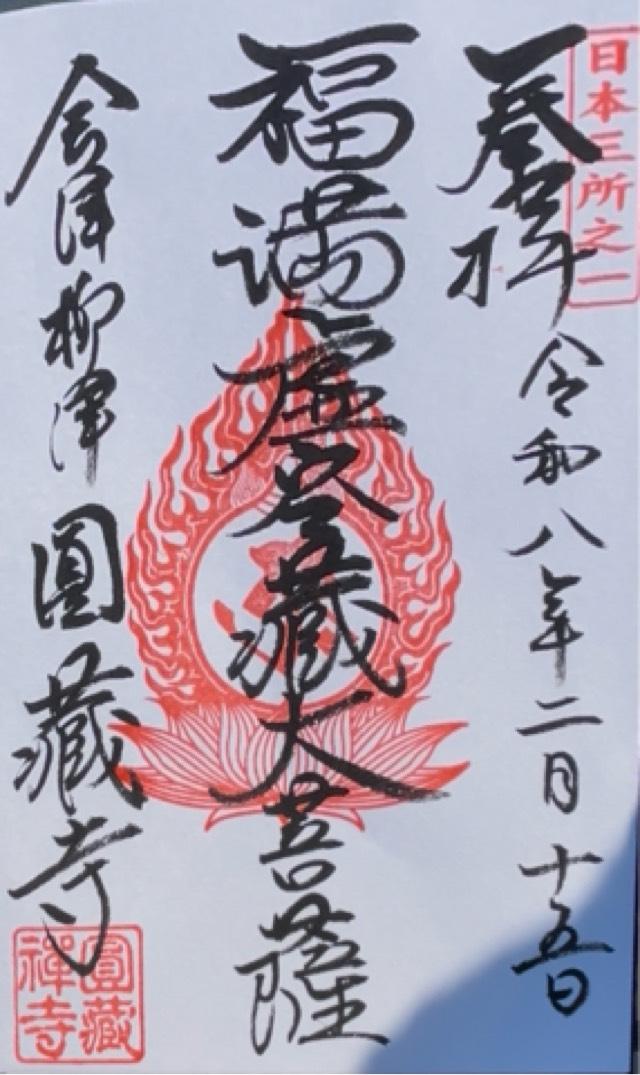 日本三所之一
登拝 令和八年二月十五日
福満虚空藏大菩薩
会津柳津 圓藏寺
圓藏禅寺